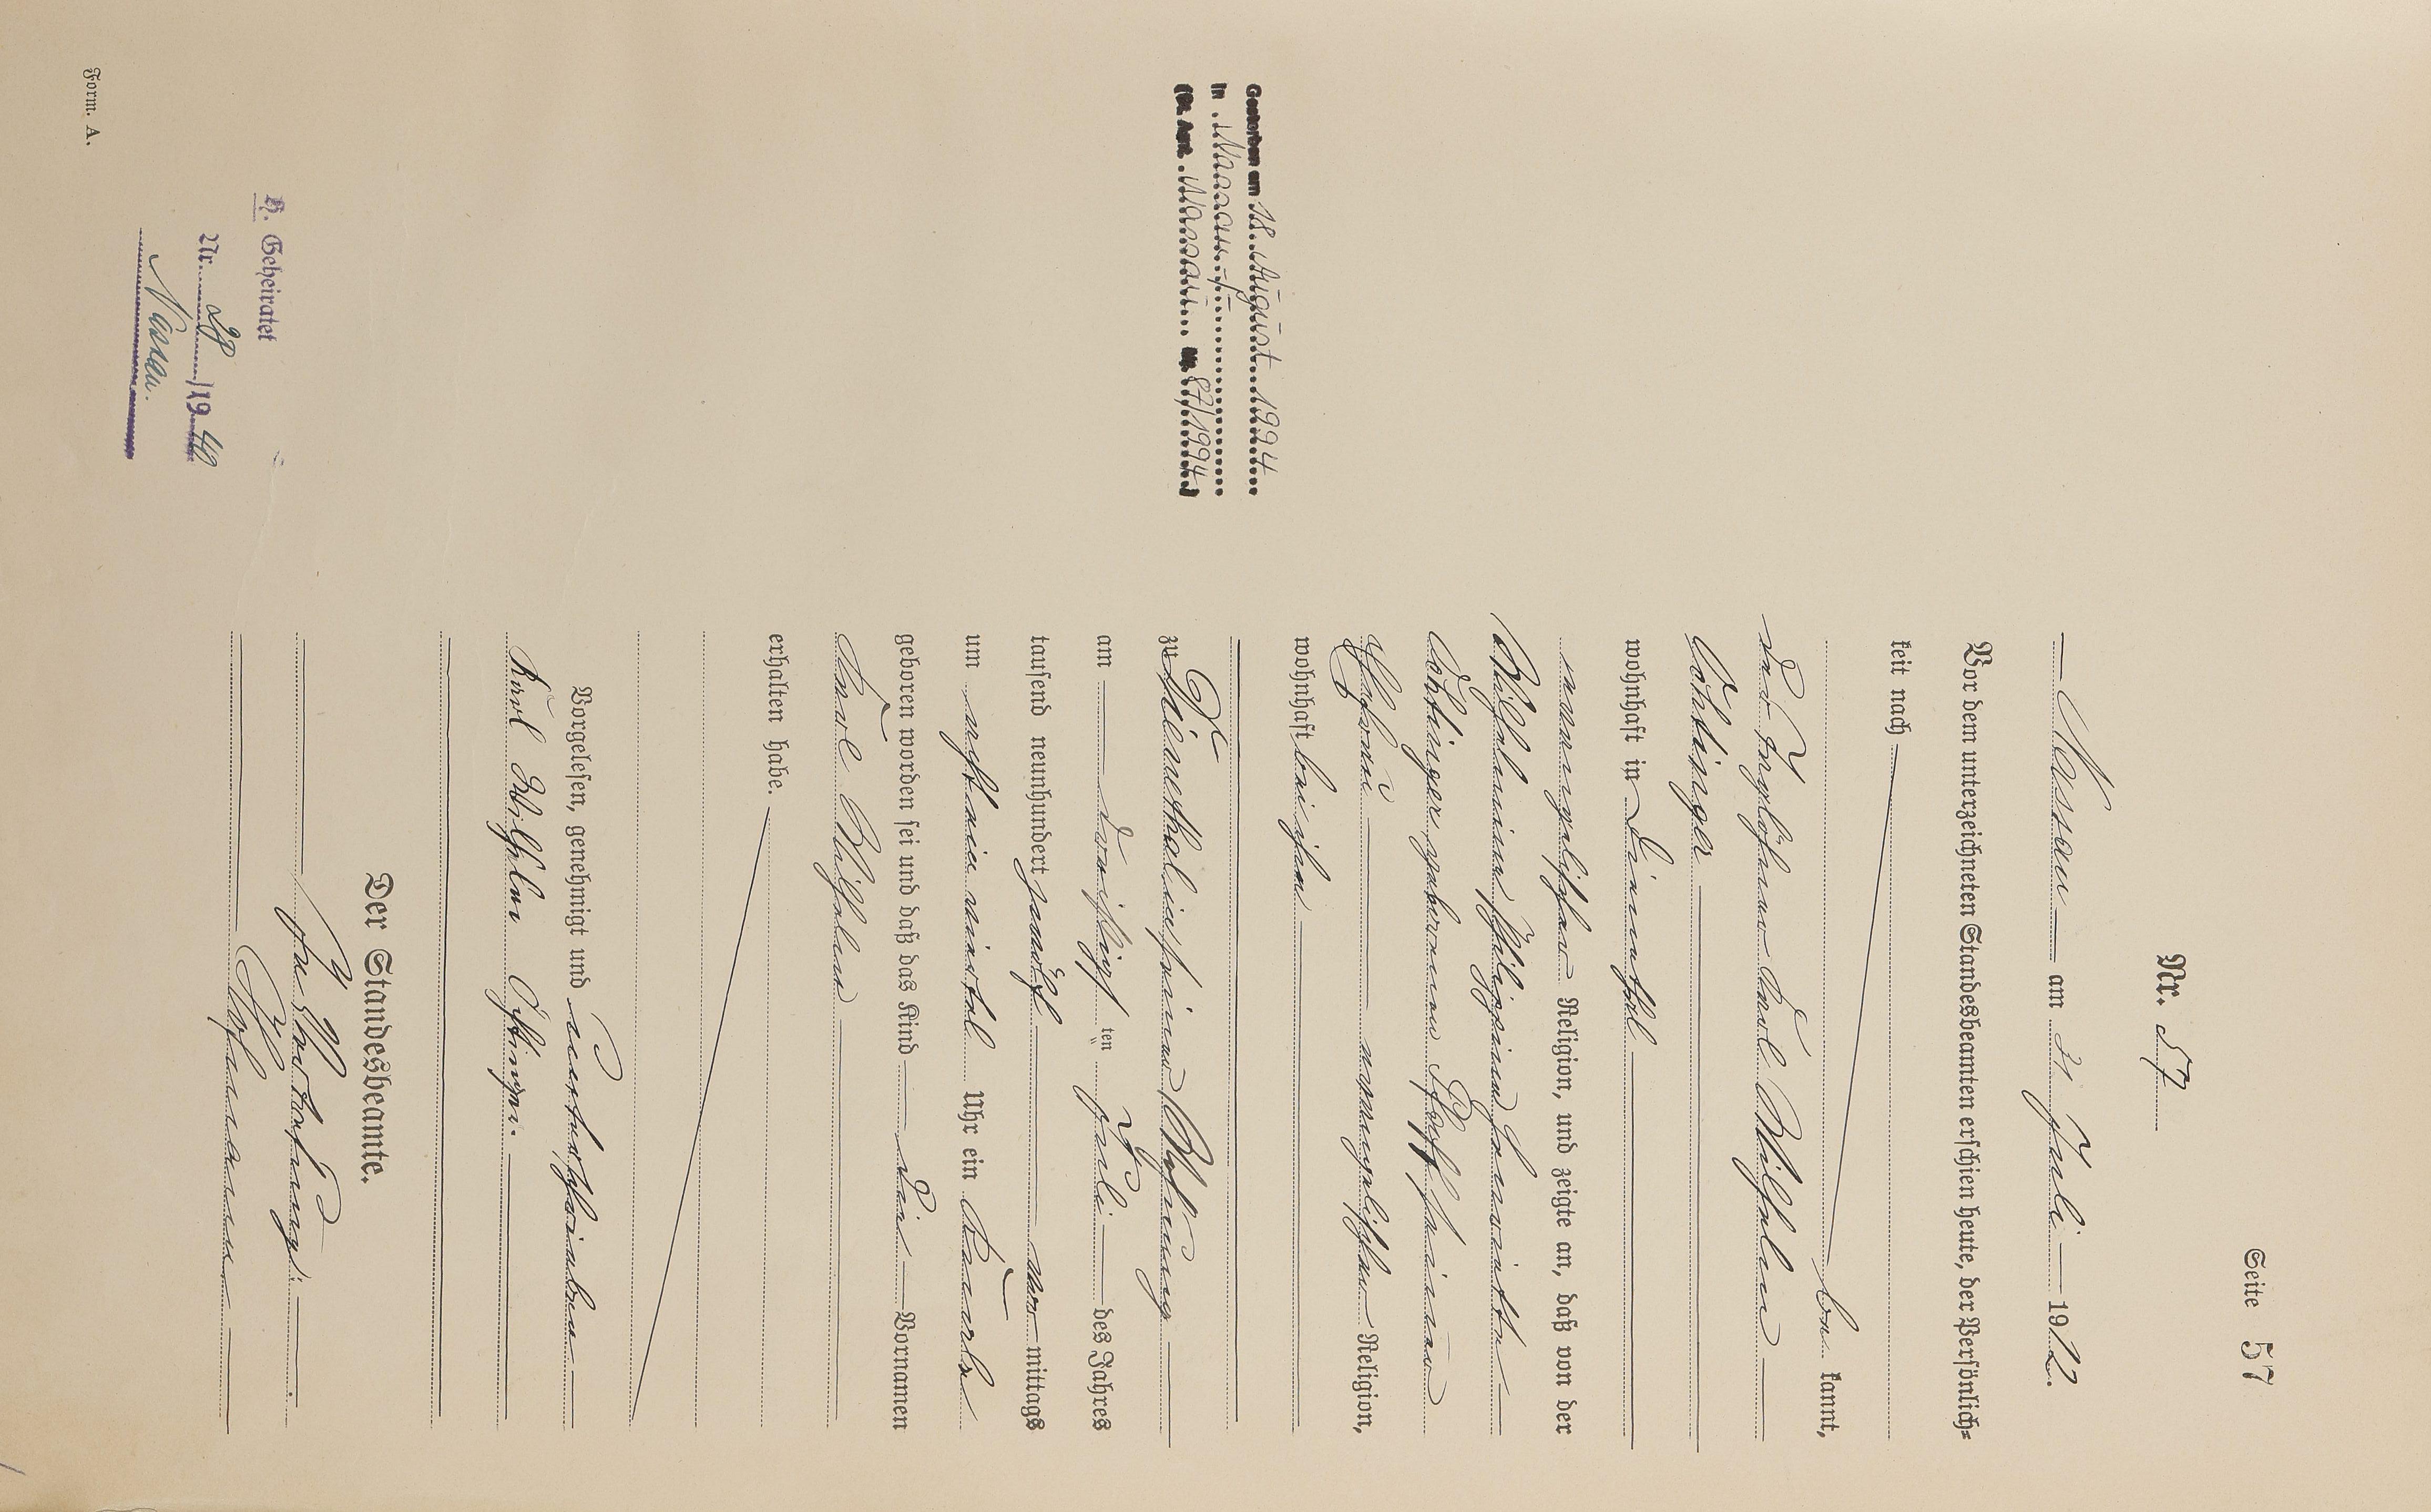 Seite 57
Nr. 57
Nassau am 31 Juli 1912.
Vor dem unterzeichneten Standesbeamten erschien heute, der Persönlich=
keit nach
be kannt,
der Taglöhner Karl Wilhelm
Öchtinger
wohnhaft in Dienethal
evangelischer Religion, und zeigte an, daß von der
Wilhelmine Philippine Henriette
Öchtinger geborenen
Ehefrau evangelischer Religion,
wohnhaft bei ihm
zu Dienethal in seiner Wohnung
am dreißigsten Juli des Jahres
tausend neunhundert zwölf vor mittags
um acht ein viertel Uhr ein Knabe
geboren worden sei und daß das Kind die Vornamen
Karl Wilhelm
erhalten habe.
Vorgelesen, genehmigt und unterschrieben
Karl Wilhelm Öchtinger.
Der Standesbeamte.
In Vertretung:
Gestorben am 18. August 1994
in Nassau
(St. Amt Nassau Nr. 87/1994)
H. Geheiratet
Nr. 28/1940
Nassau.
Form. A.